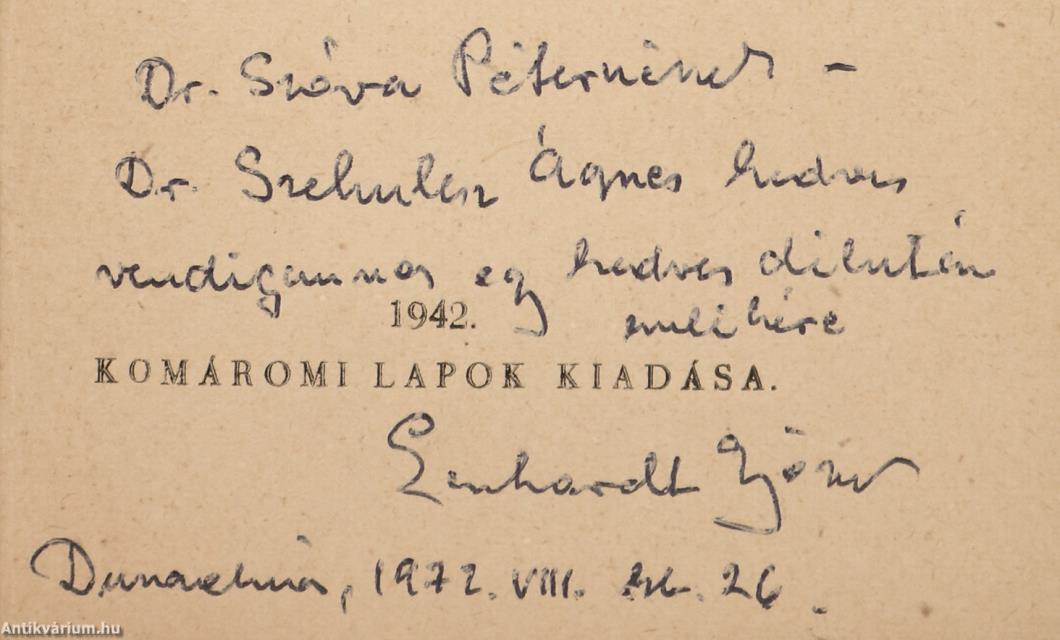 Dr. Szóva Péternének –
Dr. Szekulesz Ágnes kedves
vendégemnek egy kedves délután
emlékére
1942.
KOMÁROMI LAPOK KIADÁSA.
Lenhardt György
1972. VIII. 26.
Antikvárium.hu